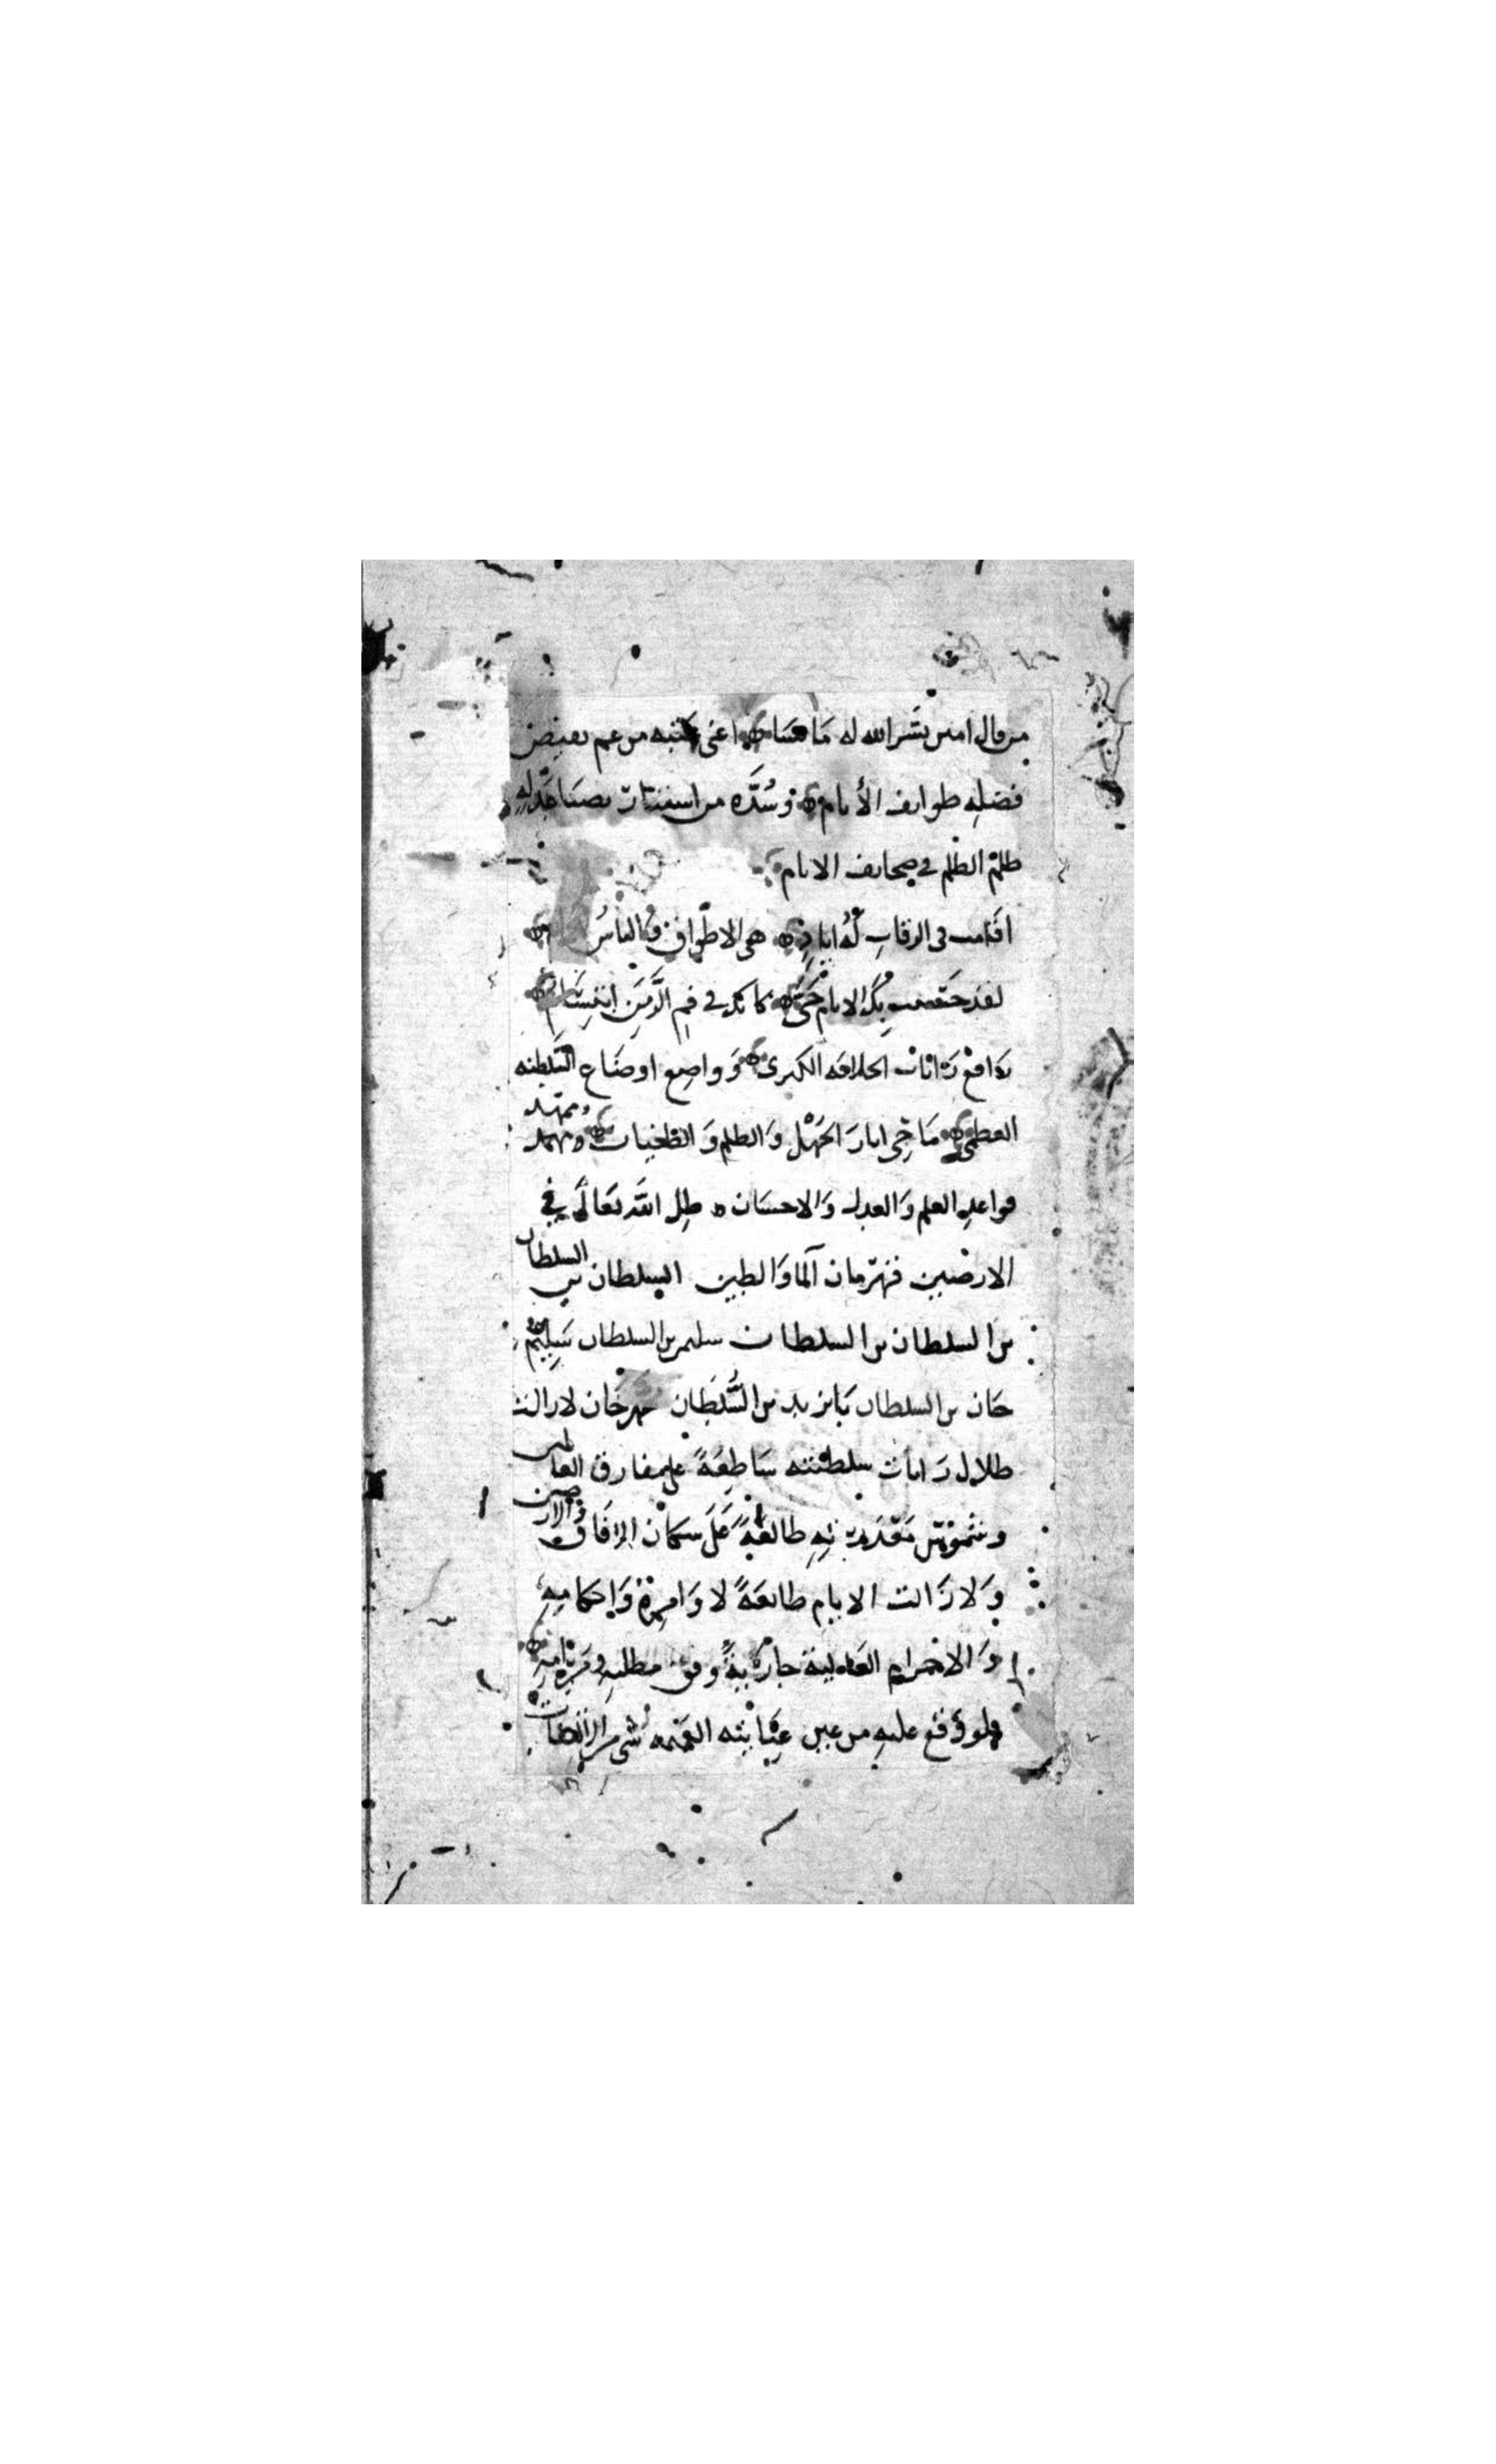 من قال امين يسر الله له ما يشا اعنى عتبة من عم بفيض
فضله طوايف الأنام وسُدّة من استنارت بصباح عدله
ظلم الظلم في صحايف الايام
اقامت في الرقاب له اياد هي الاطواق والناس
لقد حسنت بك الايام حتى كانك في فم الزمن ابتسام
رافع رايات الخلافة الكبرى وواضع اوضاع السلطنة
العظمى ماحي اثار الجهل والظلم والطغيان وممهد
قواعد العلم والعدل والاحسان ظل الله تعالى في
الارضين قهرمان الما والطين السلطان بن السلطان
بن السلطان بن السلطان سليم بن السلطان سليم
خان بن السلطان بايزيد بن السلطان خان لازالت
ظلال رايات سلطنته ساطعة على مفارق العالمين
وشموس طالعة على سكان الافاق والارضين
ولا زالت الايام طائعة لاوامره واحكامه
والاجرام جارية وفق مطلبه ومرامه
فلو وقع عليه من عين عنايته شي من